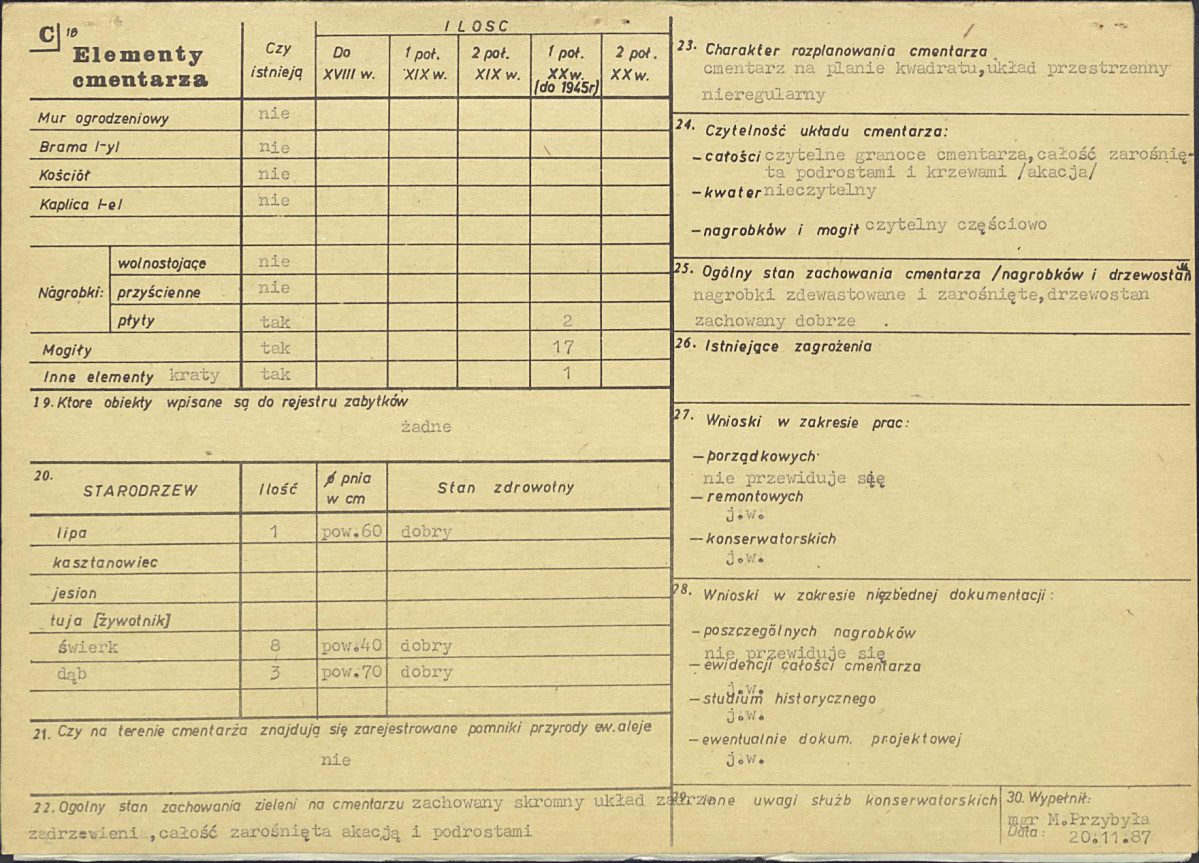 C 18
Elementy
cmentarza
Czy
istnieją
ILOSC
Do
XVIII w.
1 poł.
XIX w.
2 poł.
XIX w.
1 poł.
XX w.
(do 1945r)
2 poł.
XX w.
Mur ogrodzeniowy nie
Brama I-yI nie
Kościół nie
Kaplica I-eI nie
Nagrobki:
wolnostojące nie
przyścienne nie
płyty tak 2
Mogiły tak 17
Inne elementy kraty tak 1
19. Ktore obiekty wpisane są do rejestru zabytków
żadne
20.
STARODRZEW Ilość ø pnia
w cm Stan zdrowotny
lipa 1 pow.60 dobry
kasztanowiec
jesion
tuja [żywotnik]
świerk 8 pow.40 dobry
dąb 3 pow.70 dobry
21. Czy na terenie cmentarza znajdują się zarejestrowane pomniki przyrody ew. aleje
nie
22. Ogolny stan zachowania zieleni na cmentarzu zachowany skromny układ
zadrzewieni, całość zarośnięta akacją i podrostami
23. Charakter rozplanowania cmentarza
cmentarz na planie kwadratu,układ przestrzenny
nieregularny
24. Czytelność układu cmentarza:
- całości czytelne granoce cmentarza,całość zarośnię-
ta podrostami i krzewami /akacja/
- kwater nieczytelny
- nagrobków i mogił czytelny częściowo
25. Ogólny stan zachowania cmentarza /nagrobków i drzewostan
nagrobki zdewastowane i zarośnięte,drzewostan
zachowany dobrze .
26. Istniejące zagrożenia
27. Wnioski w zakresie prac:
- porządkowych
nie przewiduje się
- remontowych
j.w.
- konserwatorskich
j.w.
28. Wnioski w zakresie niezbednej dokumentacji:
- poszczególnych nagrobków
nie przewiduje się
- ewidencji całości cmentarza
j.w.
- studium historycznego
j.w.
- ewentualnie dokum. projektowej
j.w.
29. Inne uwagi służb konserwatorskich
30. Wypełnił:
mgr M.Przybyła
Data: 20.11.87